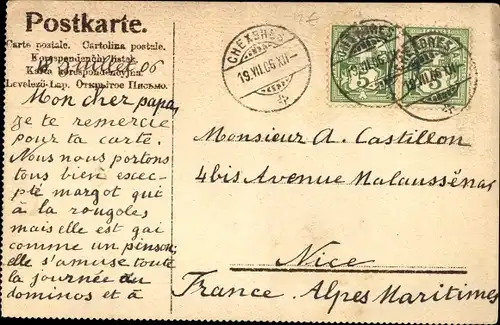 Postkarte.
Carte postale. Cartolina postale.
Korespondenční lístek.
Karta korespondencyjna.
Levelező-Lap. Открытое Письмо.
Juillet 06
Mon cher papa,
je te remercie
pour ta carte.
Nous nous portons
tous bien excep-
pté margot qui
à la rougoles
mais elle est gai
comme un pinson;
elle s'amuse toute
la journée au
dominos et à
CHEXBRES
19.VII.06.XII
CHEXBRES
19.VII.06.XII
5
Monsieur A. Castillon
4bis Avenue Malausséna
Nice
France. Alpes Maritimes